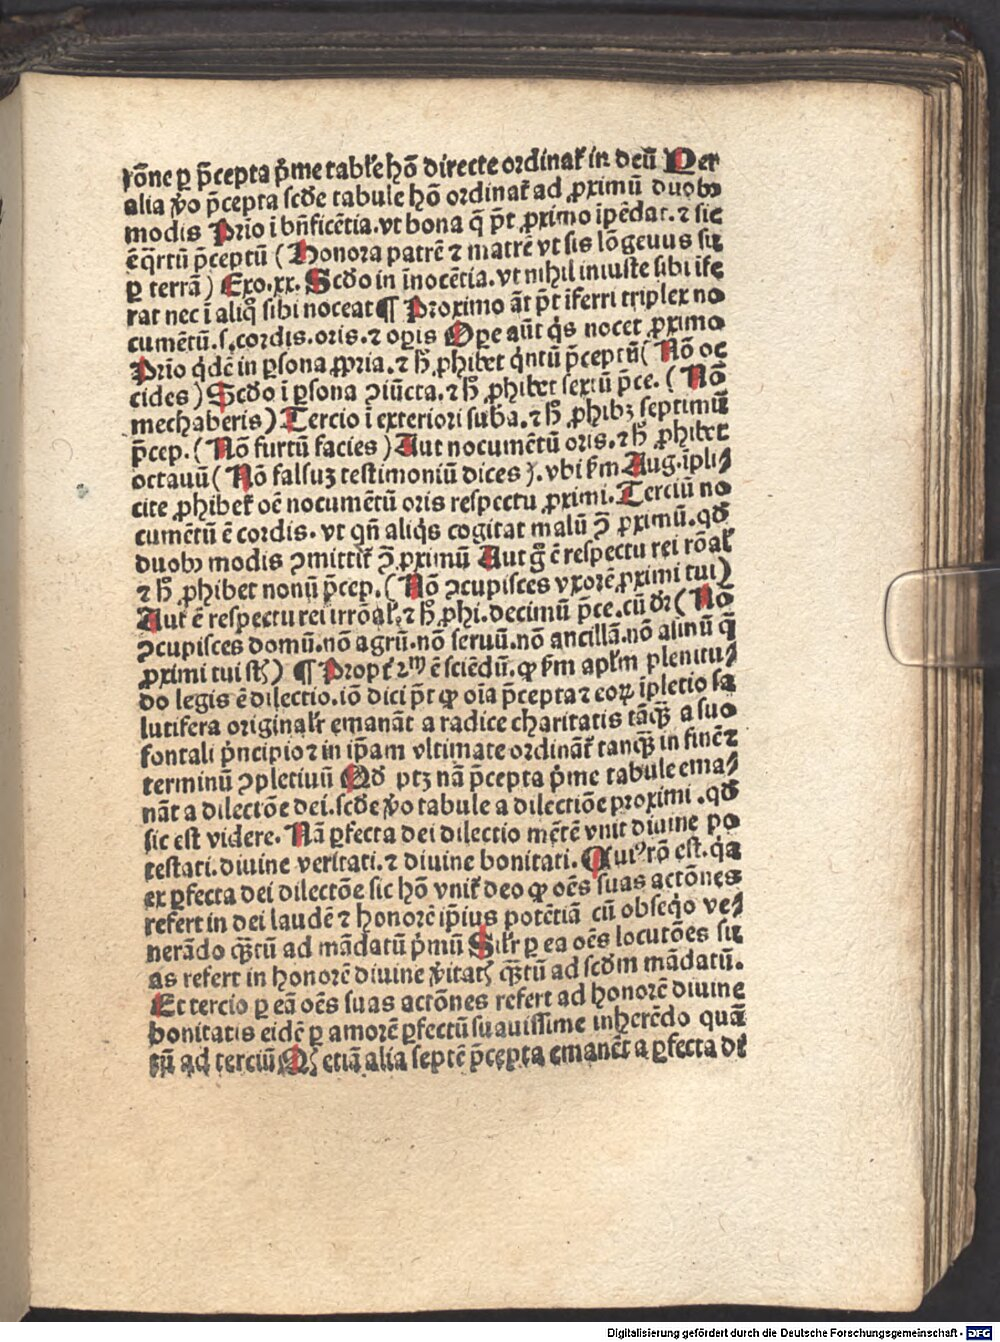 rõne ꝑ p̃cepta p̾me tabłe hõ directe ordinat᷑ in deũ Per
alia ꝟo p̃cepta scđe tabule hõ ordinat᷑ ad ꝓximũ duobꝫ
modis Prio ĩ bñficẽtia.vt bona q̃ p̃t ꝓximo ĩpẽdat.⁊ sic
ẽ q̾rtũ p̃ceptũ (Honora patrẽ ⁊ matrẽ vt sis lõgeuus suꝑ
ꝑ terrã) Exo.xx. Scđo in ĩnocẽtia.vt nihil iniuste sibi ĩfe
rat nec ĩ aliq̊ sibi noceat ¶ Proximo ãt p̃t ĩferri triplex no
cumẽtũ.s.cordis.oris.⁊ oꝑis Oꝑe aũt q̾s nocet ꝓximo
Prĩo q̾dẽ in ꝑsona ꝓpria.⁊ ħ ꝓhibet q̾ntũ p̃ceptũ (Nõ oc
cides) Scđo ĩ ꝑsona ꝯiũcta.⁊ ħ ꝓhibet sextũ p̃ce. (Nõ
mechaberis) Tercio ĩ exteriori suba̾.⁊ ħ ꝓhibꝫ septimũ
p̃cep.(Nõ furtũ facies) Aut nocumẽtũ oris.⁊ ħ ꝓhibet
octauũ (Nõ falsuꝫ testimoniũ dices).vbi ẜm Aug.ĩpli⸗
cite ꝓhibet᷑ oẽ nocumẽtũ oris respectu ꝓximi.Terciũ no
cumẽtũ ẽ cordis.vt qñ aliq̾s cogitat malũ ꝯ̃ ꝓximũ.qđ
duobꝫ modis ꝯmittit᷑ ꝯ̃ ꝓximũ Aut g̊ ẽ respectu rei rõał
⁊ ħ ꝓhibet nonũ p̃cep.(Nõ ꝯcupisces vxorẽ ꝓximi tui)
Aut ẽ respectu rei irrõał.⁊ ħ ꝓhi.decimũ p̃ce.cũ đr (Nõ
ꝯcupisces domũ.nõ agrũ.nõ seruũ.nõ ancillã.nõ asinũ q̃
ꝓximi tui sꝭ) ¶ Propt᷑ 2ᵐ ẽ sciẽdũ.ꝙ ẜm apłm plenitu⸗
do legis ẽ dilectio.iõ dici p̃t ꝙ oĩa p̃cepta ⁊ eoꝝ ĩpletio sa
lutifera originalr̾ emanãt a radice charitatis tãꝙ̃ a suo
fontali p̾ncipio ⁊ in ip̃am vltimate ordinãt᷑ tanꝙ̃ in finẽ ⁊
terminũ ꝯpletiuũ Qđ ptꝫ nã p̃cepta p̾me tabule ema⸗
nãt a dilectõe dei.scđe ꝟo tabule a dilectiõe proximi.qđ
sic est videre. Nã ꝑfecta dei dilectio mẽtẽ vnit diuine po
testati.diuine veritati.⁊ diuine bonitati. Cuiꝰ rõ est.q̾a
ex ꝑfecta dei dilectõe sic hõ vnit᷑ deo ꝙ oẽs suas actões
refert in dei laudẽ ⁊ honorẽ ip̃ius potẽtiã cũ obseq̾o ve⸗
nerãdo q̃tũ ad mãdatũ p̾mũ Silr̾ ꝑ ea oẽs locutões su
as refert in honorẽ diuine ꝟitatꝭ q̃tũ ad scđm mãdatũ.
Et tercio ꝑ eã oẽs suas actõnes refert ad honorẽ diuine
bonitatis eidẽ ꝑ amorẽ ꝑfectũ suauissime inherẽdo quã
tũ ad terciũ Qꝫ etiã alia septẽ p̃cepta emanẽt a ꝑfecta di
Digitalisierung gefördert durch die Deutsche Forschungsgemeinschaft - DFG